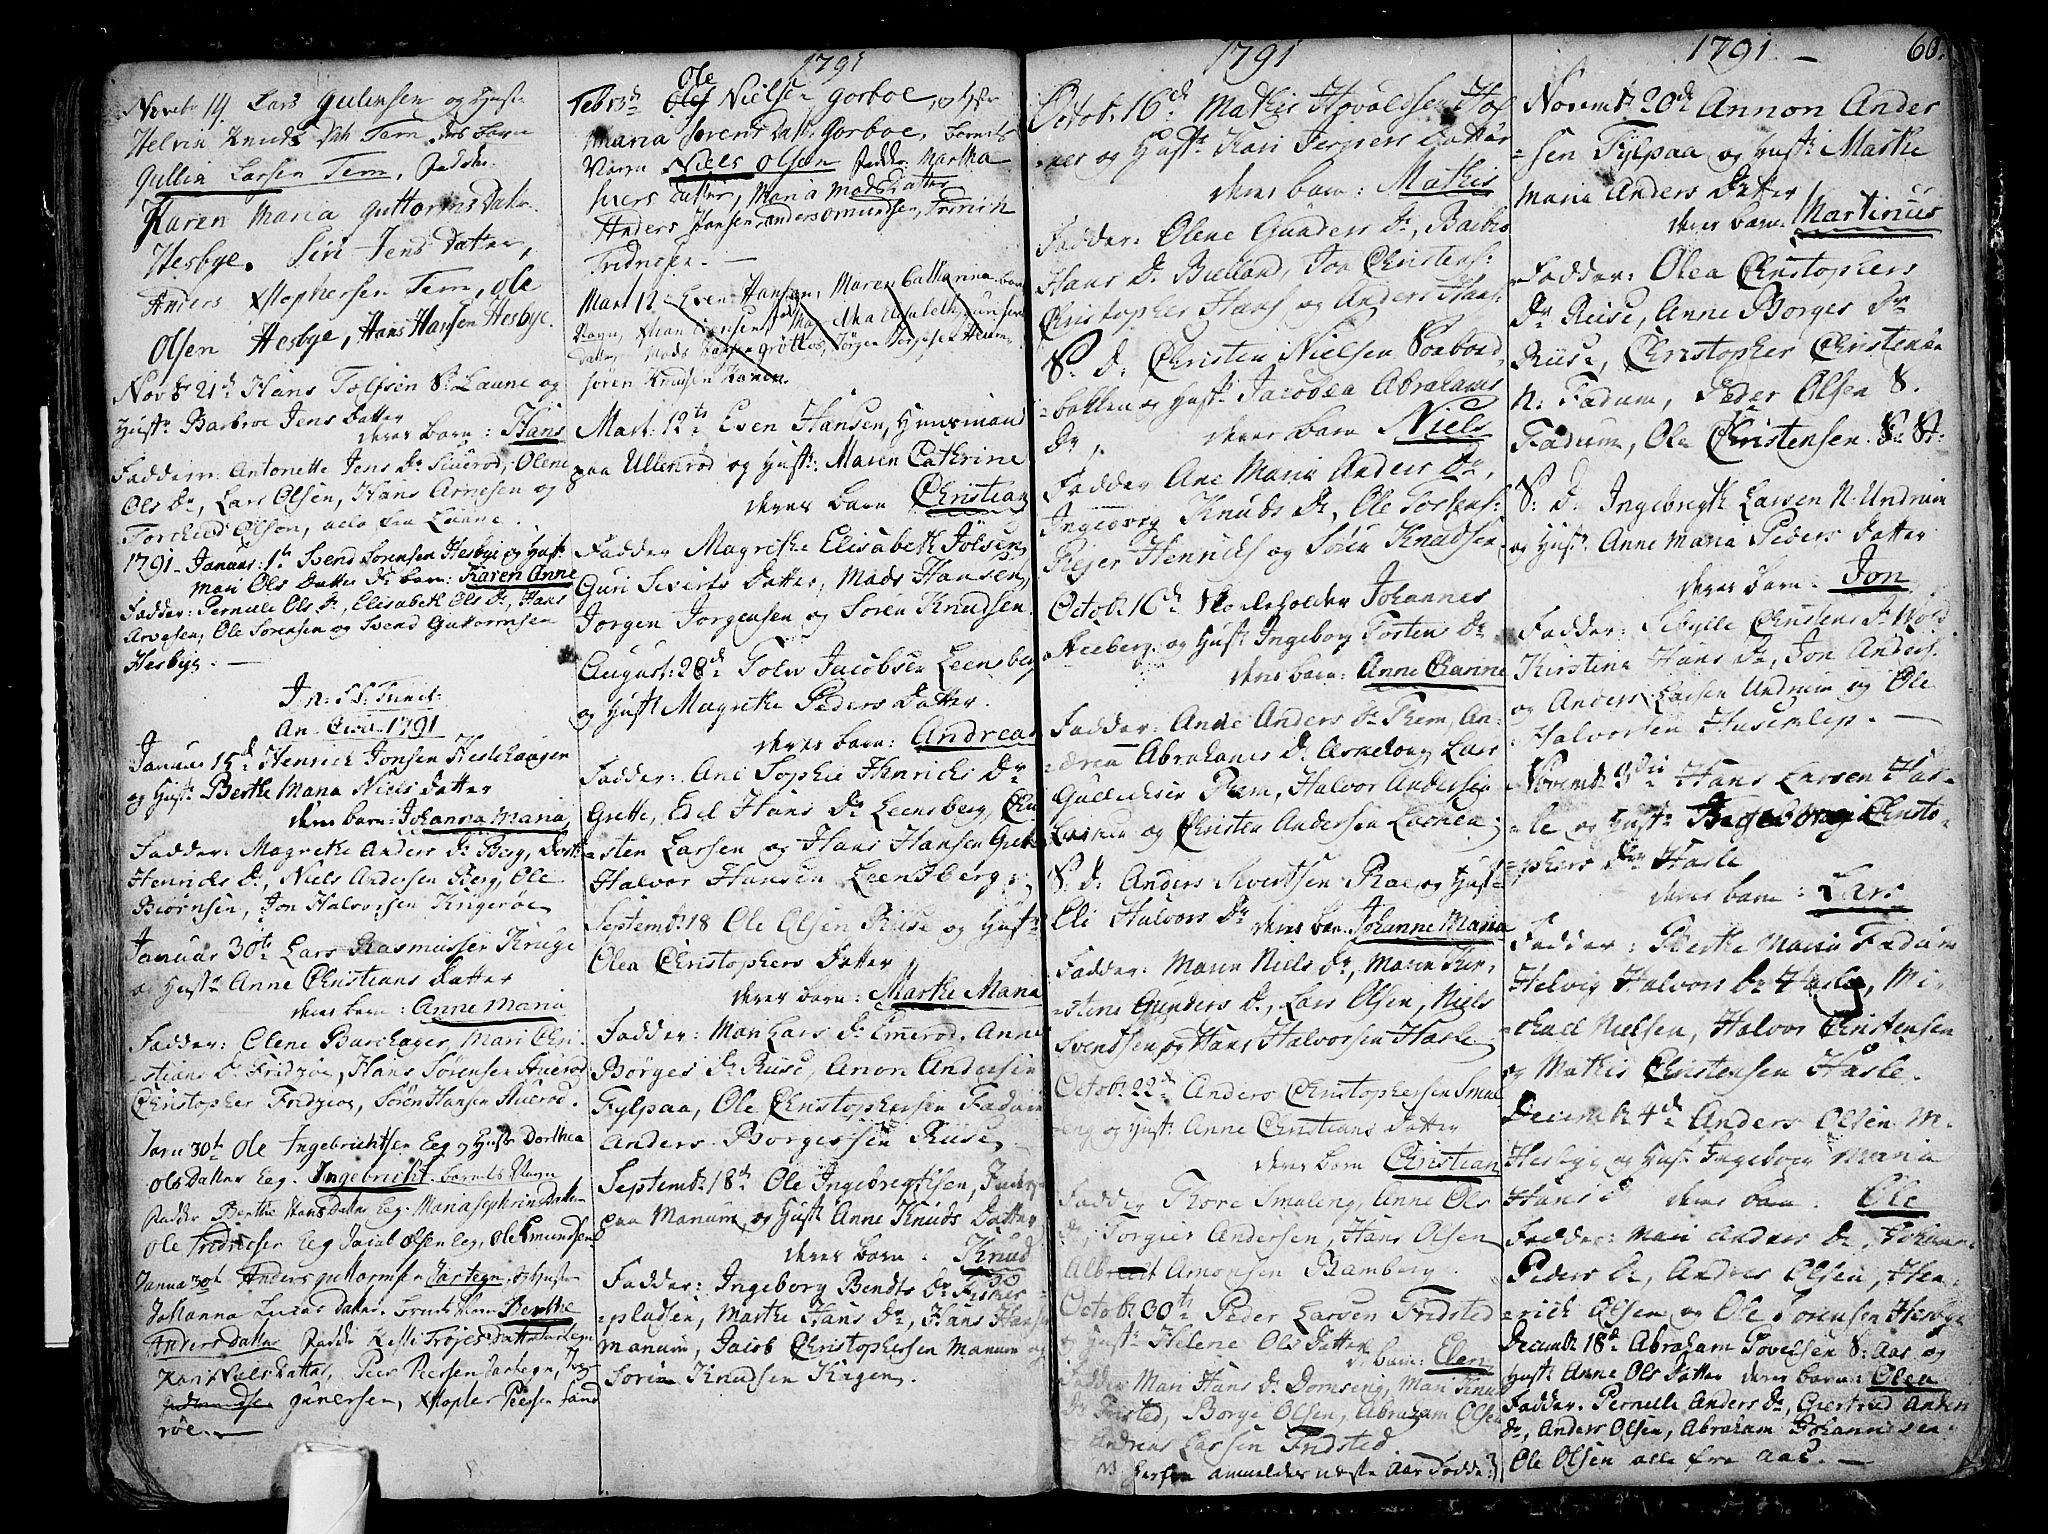 1791
Novebr 14. Lars Gulensen og Hust.
Helvin Knuds Dat. Tem, des barn
Gullin Larsen Tem, fadde.
Karen Maria Guttorms Datter
Hesbye. Siri Jens Datter,
Anders Xstophersen Tem, ole
Olsen Hesbye, Hans Hansen Hesbye.
Novbr 21de Hans Tolfsen S. Laune og
Hustr. Barbroe Jens Datter
deres barn: Hans
Faddere: Antonette Jens Dr, Olene
Ols Dr, Lars Olsen, Hans Arnesen og
Torchild Olsen, alle fra Laune.
1791. Januar: 1te Svend Sörensen Hesbye og Hustr.
Mari Ols Datter D. barn: Karen Anne
Fadder: Pernille Ols Dr, Elisabeth Ols Dr, Hans
Arvesen, Ole Sörensen og Svend Guttormsen
Hesbye.
J. n. S. S. Trinit:
An. 1791
Januar 15de Henrich Jonsen Hestehaugen
og Hustr. Berthe Maria Niels Datter
deres barn: Johanna Maria
Fadder: Magrethe Anders Dr Berg,
Henrichs Dr, Niels Andersen Berg, Ole
Biørnsen, Jon Halvorsen Krigerøe
Januar 30te Lars Rasmussen Kruge
og Hustr. Anne Christians Datter
deres barn: Anne Maria
Fadder: Olene Barchager, Mari Chri-
stians Dr Fridzøe, Hans Sørensen
Christopher Fridzøe, Sören Hansen
Janu 30te Ole Ingebrichtsen Eeg og Hustr. Dorthea
Ols Datter Eeg. Ingebricht barnets Navn
Fadder Berthe Hans Datter Eeg. Maria Datter
Ole Fridricsen Eeg Jacob Olsen Eeg, Ole Emundsen
Janua 30te Anders Guttormsen Jartegn, og Hustr
Johanna Lars Datter. Berthe
Anders Datter fadde Datter Jartegn
Kari Niels Datter, Peer Peersen Jartegn,
Gunersen, Xstopher Peersen Sand
röe.
1791
Feb 13de Ole Nielsen Gorboe, og Hstr
Maria Sørens Dat. Gorboe, barnets
Navn Niels Olsen fadder Martha
Ivers Datter, Maria Mads Datter
Anders Hansen, Anders Omundsen, Fridrich
Fridricsen.
Mart 12 Even Hansen, Maren Cathrina
Navn, Xstian Evensen
Datter, Mads Hansen Grøttes, Jörgen Jörgensen
Sören Knudsen Haven.
Mart: 12te Even Hansen, Huusmand
paa Ullenröd og Hustr: Maren Cathrine
deres barn Christian
Fadder Magrethe Elisabeth Jölsen,
Guri Siverts Datter, Mads Hansen,
Jörgen Jörgensen og Sören Knudsen.
August: 28de Tolv Jacobsen Leensberg
og Hustr Magrethe Peders Datter.
deres barn: Andreas
Fadder: Ane Sophie Henrichs Dr
Grette, Edel Hans Dr Leensberg, Chri
=sten Larsen og Hans Hansen Grette
Halvor Hansen Leensberg.
Septembr 18 Ole Olsen Riise og Hustr.
Olea Christophers Datter
deres barn: Marthe Maria
Fadder: Mari Lars Dr Emeröd, Anne
Börges Dr Riise, Anon Andersen
Fylpaa, Ole Christophersen Fadum
Anders Borgersen Riise
Septembr 18de Ole Ingebregtsen,
paa Manum og Hustr Anne Knuds Datter
deres barn: Knud
Fadder: Ingeborg Bendts Dr Fisker-
=pladsen, Marthe Hans Dr, Hans Hansen
Manum, Jacob Christophersen Manum og
Sören Knudsen Krigen.
1791
Octob: 16de Mathis Hovaldsen Hof
og Hustr. Kari Jespers Datter
deres barn: Mathis
Fadder: Olene Gunders Dr, Barbro
Hans Dr Bielland, Jon Christens:
Christopher Hans: og Anders Hans:
S. D: Christen Nielsen
=bakken og Hustr. Jacobea Abrahams
Dr, deres barn Niels
Fadder Ane Maria Anders Dr,
Ingeborg Knuds Dr, Ole Torstens:
Rejer Henrichs: og Sören Knudsen.
Octob: 16de Skoleholder Johannes
Heeberg og Hustr. Ingeborg Torstens Dr
deres barn: Anne Channe
Fadder: Anne Anders Dr Rem, An-
=drea Abrahams Dr, Lars
Gullichsen Rem, Halvor Andersen
og Christen Andersen
S. D. Anders Sivertsen Roe, og Hustr
Eli Halvors Dr deres barn: Johanne Maria
Fadder: Maren Niels Dr, Maren Kir-
=stene Gunders Dr, Lars Olsen, Niels
Svendsen, og Hans Halvorsen Hasle
Octob: 22de Anders Christophersen Smal
eng og Hustr. Anne Christians Datter
deres barn Christian
Fadder Thore Smaleng, Anne Ols
Dr: Torgier Andersen, Hans Olsen
Albrect Amonsen Ramberg.
Octob: 30te Peder Larsen Fridsted
og Hustr. Helene Ols Datter
D. barn: Elen
Fadder Mari Hans Dr, Mari Knuds
Dr Fristed, Börge Olsen, Abraham Olsen
Andreas Larsen Fridsted.
NB anmeldes næste Aar Födde
1791 60.
Novembr 20de Annon Ander
=sen Fylpaa og Hustr. Marthe
Maria Anders Datter
deres barn: Martinus
Fadder: Olea Christophers
Dr Riise, Anne Borges Dr
Riise, Christopher Christensen
N: Fadum, Peder Olsen S.
Fadum, Ole Christensen.
S: D: Ingebregth Larsen N: Undrum
og Hustr. Anne Maria Peders Datter
deres barn: Jon
Fadder: Sibylle Christens Dr
Kirstina Hans Dr, Jon Anders:
og Anders Larsen Undrum og Ole
Halvorsen
Novembr 3die Hans Larsen Has-
=le og Hustr. Ingeborg Christo-
=phers Dr Hasle
deres barn: Lars
Fadder: Berthe Maria Fadum
Helvig Halvors Dr Hasle, Mi-
=chael Nielsen, Halvor Christensen
og Mathis Christensen Hasle.
Decembr 4de Anders Olsen M.
Hesbye og Hustr. Ingeborg Maria
Hans D deres barn. Ole
Fadder: Mari Andres Dr, Johanne
Peders Dr, Andres Olsen, Hen-
=rich Olsen og Ole Sörensen Hesbye
Decembr 18de Abraham Povelsen S: Aas og
Hustr Anne Ols Datter deres barn: Olea
Fadder. Pernille Anders Dr, Giertrud Anders
Dr, Anders Olsen, Abraham Johannesen
Ole Olsen alle fra Aas.